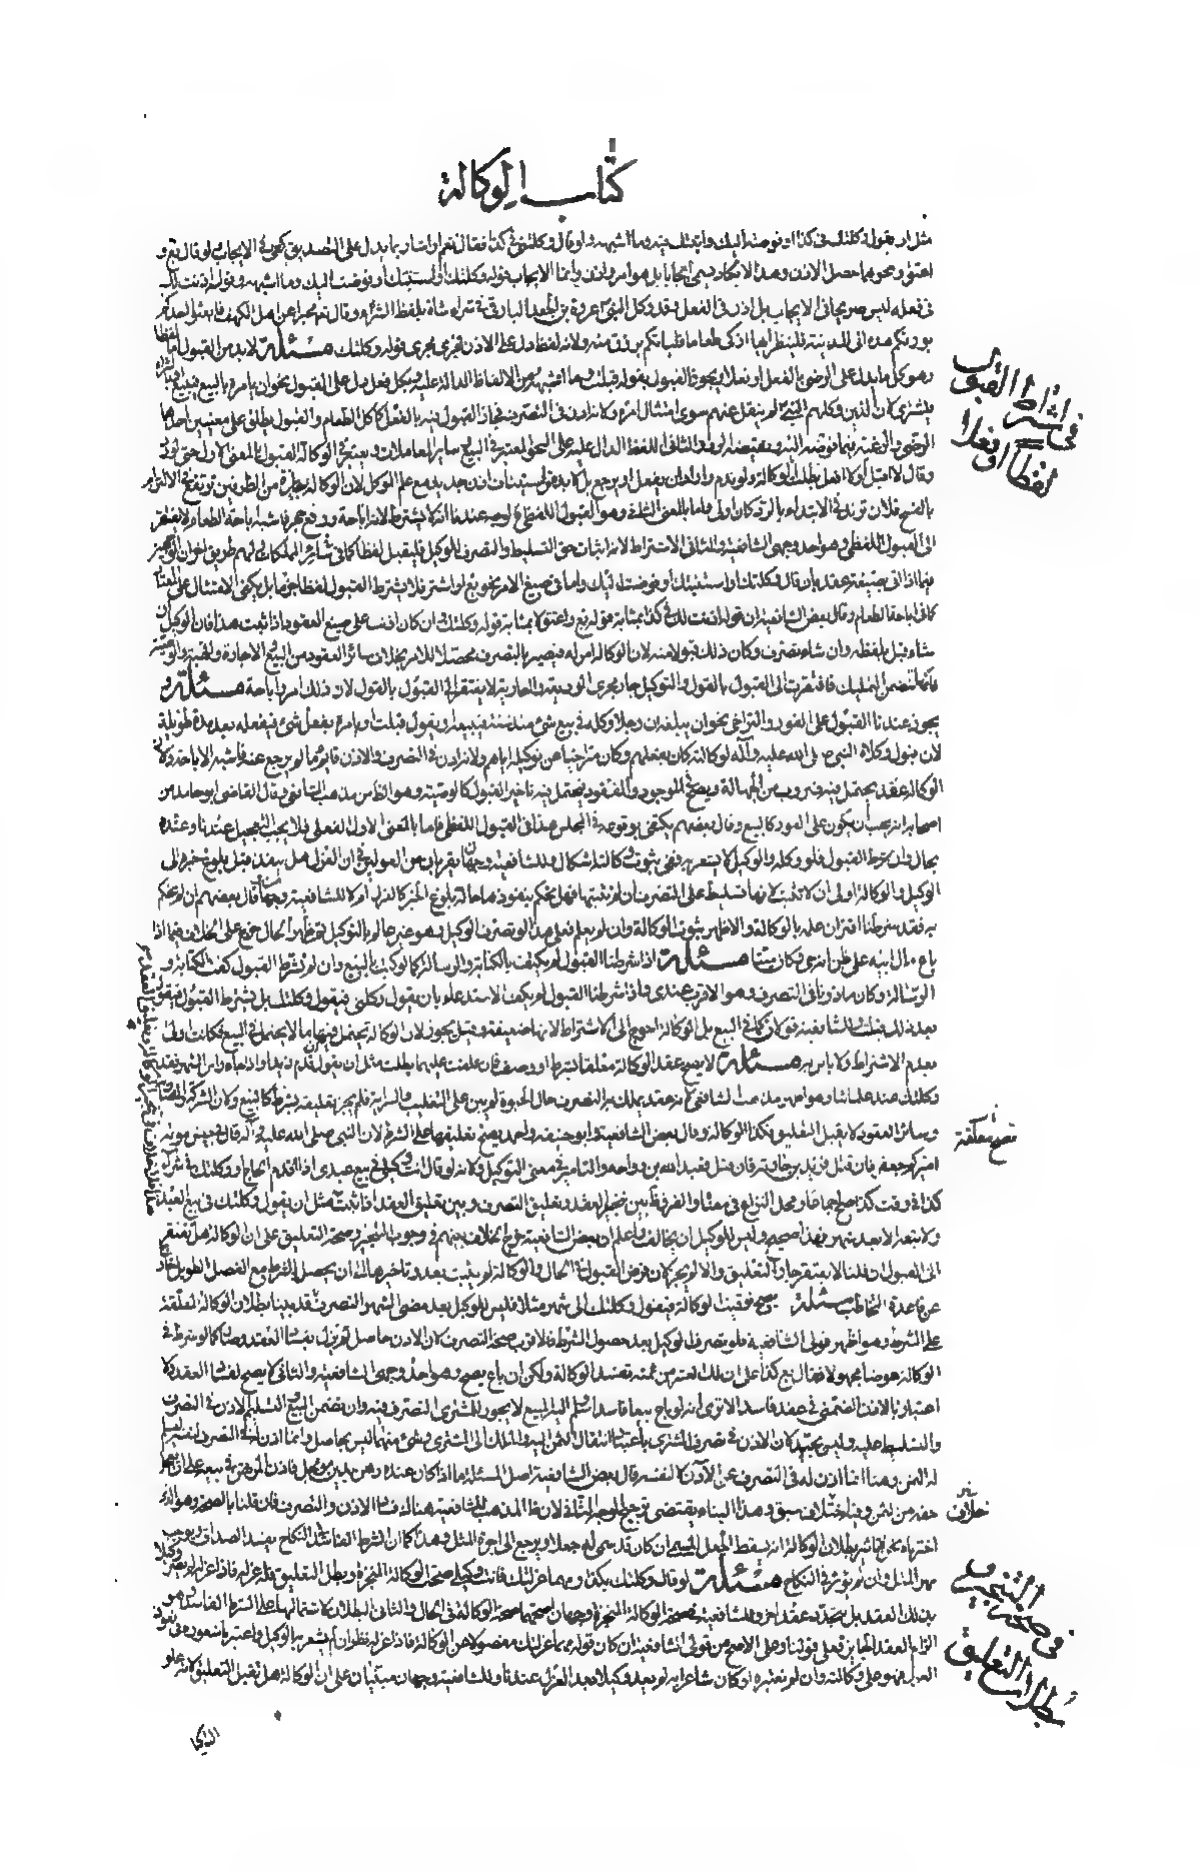 كتاب الوكالة
مثل ان يقول وكلتك في كذا او فوضته اليك واستنبتك فيه وما اشبهه ولو قال وكلتني في كذا فقال نعم او اشار بما يدل على التصديق كفى في الايجاب لو قال بع و
اعتق ونحوهما حصل الاذن وهذا لا يكاد يسمى ايجابا بل هو امر واذن وانما الايجاب قوله وكلتك او استنبتك او فوضت اليك وما اشبهه وقوله اذنت لك
في فعله ليس صريحا في الايجاب بل اذن في الفعل وقد وكل النبي عروة بن الجعد البارقي في شراء شاة بلفظ الشراء وقال تعالى مخبرا عن اهل الكهف فابعثوا احدكم
بورقكم هذه الى المدينة فلينظر ايها ازكى طعاما فليأتكم برزق منه ولانه لفظ دل على الاذن فجرى مجرى قوله وكلتك مسئلة لا بد من القبول اما لفظا
وهو كل ما يدل على الرضى بالفعل او فعلا ويجوز القبول بقوله قبلت وما اشبهه من الالفاظ الدالة عليه وبكل فعل دل على القبول نحو ان يامره بالبيع فيبيع او بالشراء
فيشتري لان الذين وكلهم النبي لم ينقل عنهم سوى امتثال امره ولانه اذن في التصرف فجاز القبول فيه بالفعل كاكل الطعام والقبول يطلق على معنيين احدهما
الرضى والرغبة فيما فوضه اليه ونقيضه الرد والثاني اللفظ الدال عليه على النحو المعتبر في البيع وساير المعاملات ويعتبر في الوكالة القبول بالمعنى الاول حتى لو رد
وقال لا اقبل او لا افعل بطلت الوكالة ولو ندم واراد ان يفعل او يرجع
بالفسخ فلان ترتد في الابتداء بالرد كان اولى واما بالمعنى الثاني وهو القبول اللفظي فالوجه عندنا انه لا يشترط لانه اباحة ورفع حجر فاشبه اباحة الطعام لا يفتقر
الى القبول اللفظي وهو احد وجهي الشافعية والثاني الاشتراط لانه اثبات حق التسليط والتصرف للوكيل فليقبل لفظا كما في سائر التمليكات ولهم طريق اخر ان الوجهين
فيما اذا اتى بصيغة عقد بان قال وكلتك او استنبتك او فوضت اليك واما في صيغ الامر نحو بع او اشتر فلا يشترط القبول لفظا جزما بل يكفي الامتثال على المعتاد
كما في اباحة الطعام وقال بعض الشافعية ان قوله اذنت لك في كذا بمثابة قوله بع واعتق لا بمثابة قوله وكلتك وان كان اذنت على صيغ العقود اذا ثبت هذا فان الوكيل ان
شاء قبل بلفظه وان شاء تصرف وكان ذلك قبولا منه لان الوكالة امر له فيصير بالتصرف محصلا للامر بخلاف سائر العقود من البيع والاجارة والهبة والوصية
فانها تتضمن التمليك فافتقرت الى القبول بالقول والتوكيل جار مجرى الوديعة والعارية لا يفتقر الى القبول بالقول لان ذلك امر واباحة مسئلة و
يجوز عندنا القبول على الفور والتراخي نحو ان يبلغه ان رجلا وكله في بيع شئ منذ سنة فيبيعه او يقول قبلت او يامره بفعل شئ فيفعله بعد مدة طويلة
لان قبول وكلاء النبي صلى الله عليه وآله لوكالته كان بفعلهم وكان متراخيا عن توكيله اياهم ولانه اذن في التصرف والاذن قائم ما لم يرجع عنه فاشبه الاباحة ولان
الوكالة عقد يحتمل فيه ضروب من الجهالة ويصح في الموجود والمفقود فيحتمل فيه تاخير القبول كالوصية وهو الظاهر من مذهب الشافعي وقال القاضي ابو حامد من
اصحابه انه يجب ان يكون على الفور كالبيع وقال بعضهم يكتفى بوقوعه في المجلس هذا في القبول اللفظي فاما بالمعنى الاول الفعلي فلا يجب التعجيل عندنا وعنده
بحال ولان شرط القبول فلو وكله والوكيل لا يشعر به ففي ثبوت وكالته اشكال وللشافعية وجهان يقربان من القولين في ان العزل هل ينفذ قبل بلوغ خبره الى
الوكيل والوكالة اولى ان لا تثبت لانها تسليط على التصرف فان لم نثبتها فهل نحكم بنفوذها حالة بلوغ الخبر كالعزل ام لا للشافعية وجهان قال بعضهم ان لم نحكم
به فقد شرطنا اقتران علمه بالوكالة والاظهر ثبوت الوكالة وان لم يعلم فعلى هذا لو تصرف الوكيل وهو غير عالم بالتوكيل ثم ظهر الحال خرج على الخلاف فيما اذا
باع مال ابيه على ظن انه حي فكان ميتا مسئلة اذا شرطنا القبول لم يكتف بالكتابة والرسالة كما لو كتب بالبيع وان لم نشترط القبول كفت الكتابة و
الرسالة وكان ماذونا في التصرف وهو الاقرب عندي واذا شرطنا القبول لم يكف الاستدعاء بان يقول وكلني فيقول وكلتك بل يشترط القبول فيقول
بعد ذلك قبلت وللشافعية قولان كما في البيع بل الوكالة احوج الى الاشتراط لانها ضعيفة وقيل يجوز لان الوكالة يحتمل فيها ما لا يحتمل في البيع فكانت اولى
بعدم الاشتراط ولا باس به مسئلة لا يصح عقد الوكالة معلقا بشرط او وصف فان علقت عليهما بطلت مثل ان يقول ان قدم زيد او اذا جاء راس الشهر فقد
وكلتك عند علمائنا وهو اظهر مذهب الشافعي لانه عقد يملك به التصرف حال الحيوة لم يبن على التغليب والسراية فلم يجز تعليقه بشرط كالبيع ولان الشركة والمضاربة
وسائر العقود لا يقبل التعليق فكذا الوكالة وقال بعض الشافعية وابو حنيفة واحمد يصح تعليقها على الشرط لان النبي صلى الله عليه وآله قال في جيش موتة
اميركم جعفر فان قتل فزيد بن حارثة فان قتل فعبد الله بن رواحة والتامير في معنى التوكيل ولانه لو قال انت وكيلي في بيع عبدي اذا قدم الحاج او وكلتك في شراء
كذا في وقت كذا صح اجماعا ومحل النزاع في معناه والفرق ظاهر بين تنجيز العقد وتعليق التصرف وبين تعليق العقد اذا ثبت هذا مثل ان يقول وكلتك في بيع العبد
ولا تبعه الا بعد شهر فهذا صحيح وليس للوكيل ان يخالف واعلم ان بعض الشافعية خرج الخلاف بينهم في وجوب التنجيز وصحة التعليق على ان الوكالة هل تفتقر
الى القبول ان قلنا لا يفتقر جاز التعليق والا لم يجز لان فرض القبول في الحال والوكالة لم يثبت بعد وتاخيرها الى ان يحصل الشرط مع الفصل الطويل خارج
عن قاعدة التخاطب مسئلة يصح توقيت الوكالة فيقول وكلتك الى شهر مثلا فليس للوكيل بعد مضي الشهر التصرف قد بينا بطلان الوكالة المعلقة
على الشرط وهو اظهر قولي الشافعية فلو تصرف الوكيل بعد حصول الشرط فالاقرب صحة التصرف لان الاذن حاصل لم يزل بفساد العقد وصار كما لو شرط في
الوكالة عوضا مجهولا فقال بع كذا على ان لك العشر من ثمنه تفسد الوكالة ولكن ان باع يصح وهو احد وجهي الشافعية والثاني لا يصح لفساد العقد ولا
اعتبار بالاذن الضمني في عقد فاسد الا ترى انه لو باع بيعا فاسدا وسلم اليه المبيع لا يجوز للمشتري التصرف فيه وان تضمن البيع والتسليم الاذن في التصرف
والتسليط عليه وليس بجيد لان الاذن في تصرف المشتري باعتبار انتقال الثمن اليه والملك الى المشتري وشئ منهما ليس بحاصل وانما اذن له في التصرف لنفسه ليسلم
له الثمن وهنا انما اذن له في التصرف عن الآذن لا لنفسه قال بعض الشافعية اصل المسئلة ما اذا كان عنده رهن بدين مؤجل فاذن المرتهن في بيعه على ان يعجل
حقه من الثمن وفيه اختلاف سبق وهذا البناء يقتضي ترجيح الوجه الثاني لان ظاهر المذهب للشافعية هناك فساد الاذن والتصرف فان قلنا بالصحة وهو الذي
اخترناه نحن فتاثير بطلان الوكالة انه يسقط الجعل المسمى ان كان قد سمى له جعلا ويرجع الى اجرة المثل وهذا كما ان الشرط الفاسد في النكاح يفسد الصداق ويوجب
مهر المثل وان لم يؤثر في النكاح مسئلة لو قال وكلتك بكذا ومهما عزلتك فانت وكيلي صحت الوكالة المنجزة وبطل التعليق فله عزله فاذا عزله لم يصر وكيلا
بذلك العقد بل بتجدد عقد اخر وللشافعية في صحة الوكالة المنجزة وجهان اصحهما صحة الوكالة في الحال والثاني البطلان لاشتمالها على الشرط الفاسد وهو
الزام العقد الجائز فعلى قولنا وعلى الاصح من قولي الشافعية ان كان قوله مهما عزلتك مفصولا عن الوكالة فاذا عزله نظر ان لم يشعر به الوكيل واعتبرنا شعوره في نفوذ
العزل فهو على وكالته وان لم نعتبره او كان شاعرا به لم يعد وكيلا بعد العزل عندنا وللشافعية وجهان مبنيان على ان الوكالة هل تقبل التعليق لانه علق
في اشتراط القبول
لفظا او فعلا
خلاف
في صحة التنجيز
بطلان التعليق